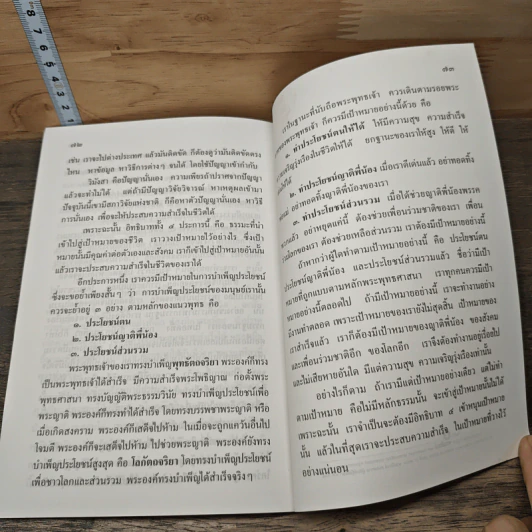 ๗๒
เช่น เราจะไปต่างประเทศ แล้วมันติดขัด ก็ต้องดูว่ามันติดขัดตรง
ไหน หาข้อมูล หาวิธีการต่างๆ จนได้ โดยใช้ปัญญาเข้ากำกับ
วิมังสา คือปัญญานั่นเอง ความเพียรถ้าปราศจากปัญญา
ทำให้ไม่ได้ แต่ถ้ามีปัญญาวิจัยวิจารณ์ หาเหตุผลเข้ามา
ปัจจุบันนี้เขามีสภาวิจัยแห่งชาติ ก็คือหาตัวปัญญานั่นเอง หาวิธี
การนั่นเอง เพื่อจะให้ประสบความสำเร็จในชีวิตได้
เพราะฉะนั้น อิทธิบาททั้ง ๔ ประการนี้ คือ ธรรมะที่นำ
เข้าไปสู่เป้าหมายของชีวิต เราวางเป้าหมายไว้อย่างไร ซึ่งเป้า
หมายนั้นมีคุณค่าต่อตัวเองและสังคม เราก็เข้าไปสู่เป้าหมายอันนั้น
แล้วเราจะประสบความสำเร็จในชีวิตของเราได้
อีกประการหนึ่ง เราควรมีเป้าหมายในการบำเพ็ญประโยชน์
ซึ่งจะขอย้ำเพียงสั้นๆ ว่า การบำเพ็ญประโยชน์ของมนุษย์เรานั้น
ควรจะย้ำอยู่ ๓ อย่าง ตามหลักของแนวพุทธ คือ
๑. ประโยชน์ตน
๒. ประโยชน์ญาติพี่น้อง
๓. ประโยชน์ส่วนรวม
พระพุทธเจ้าของเราทรงบำเพ็ญพุทธัตถจริยา พระองค์ก็ทรง
เป็นพระพุทธเจ้าได้สำเร็จ มีความสำเร็จพระโพธิญาณ ก่อตั้งพระ
พุทธศาสนา ทรงบัญญัติพระธรรมวินัย ทรงบำเพ็ญประโยชน์เพื่อ
พระญาติ พระองค์ก็ทรงทำได้สำเร็จ โดยทรงบรรพชาพระญาติ หรือ
เมื่อเกิดสงคราม พระองค์ก็เสด็จไปห้าม ในเมื่อจะถูกแคว้นอื่นไป
โจมตี พระองค์ก็จะเสด็จไปห้าม ไปช่วยพระญาติ พระองค์ยังทรง
บำเพ็ญประโยชน์สูงสุด คือ โลกัตถจริยา โดยทรงบำเพ็ญประโยชน์
เพื่อชาวโลกและส่วนรวม พระองค์ทรงบำเพ็ญได้สำเร็จจริงๆ
๗๓
เราในฐานะที่นับถือพระพุทธเจ้า ควรเดินตามรอยพระ
ของพระพุทธเจ้า ก็ควรมีเป้าหมายอย่างนี้ด้วย คือ
๑. ทำประโยชน์ตนให้ได้ ให้มีความสุข ความสำเร็จ
เจริญรุ่งเรืองในชีวิตให้ได้ ยกฐานะของเราให้สูง ให้ดี ให้
ได้
๒. ทำประโยชน์ญาติพี่น้อง เมื่อเราดีเด่นแล้ว อย่าทอดทิ้ง
อย่าทอดทิ้งญาติพี่น้องของเรา
๓. ทำประโยชน์ส่วนรวม เมื่อได้ช่วยญาติพี่น้องพรรค
แล้ว อย่าหยุดแค่นี้ ต้องช่วยเพื่อนร่วมชาติของเรา เพื่อน
ร่วมโลกของเรา ต้องช่วยเหลือส่วนรวม เราต้องมีเป้าหมาย
ถ้าหากว่าผู้ใดทำตามเป้าหมายอย่างนี้ คือ ประโยชน์ตน
ประโยชน์ญาติพี่น้อง และประโยชน์ส่วนรวมแล้ว ชื่อว่ามีเป้า
หมายที่ถูกแบบตามหลักพระพุทธศาสนา เราทุกคนควรมีเป้า
หมายอย่างนี้ตลอดไป ถ้ามีเป้าหมายอย่างนี้ เราจะทำงานอย่าง
มีงานทำตลอด เพราะเป้าหมายของเรายังไม่สุดสิ้น เป้าหมายของ
เราสำเร็จแล้ว เราก็ต้องมีเป้าหมายของญาติพี่น้อง ของสังคม
และเพื่อนร่วมชาติอีก ของโลกอีก เราจึงต้องทำงานอยู่เรื่อยไป
และไม่เสียหายอันใด มีแต่ความสุข ความเจริญรุ่งเรืองเท่านั้น
อย่างไรก็ตาม ถ้าเรามีแต่เป้าหมายอย่างเดียว แต่ไม่ทำ
ตามเป้าหมาย คือไม่มีหลักธรรมนั้น จะเข้าสู่เป้าหมายนั้นไม่ได้
เพราะฉะนั้น เราจำเป็นจะต้องมีอิทธิบาท ๔ เข้าหนุนเป้าหมาย
นั้น แล้วในที่สุดเราจะประสบความสำเร็จ ในเป้าหมายที่วางไว้
อย่างแน่นอน
8
7
6
5
4
3
2
1